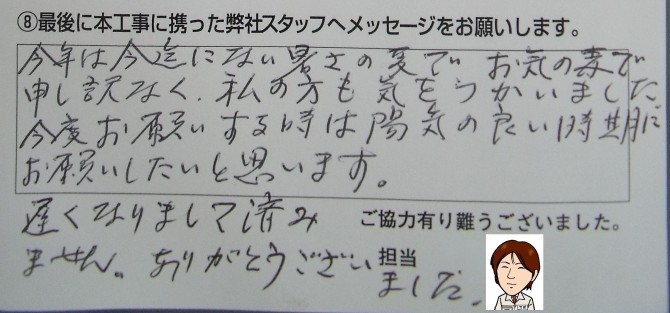 ⑧最後に本工事に携った弊社スタッフへメッセージをお願いします。
今年は今迄にない暑さの夏で お気の毒で
申し訳なく、私の方も気をつかいました。
今度お願いする時は陽気の良い時期に
お願いしたいと思います。
遅くなりまして済み
ご協力有り難うございました。
ません。ありがとうござい
担当
ました。